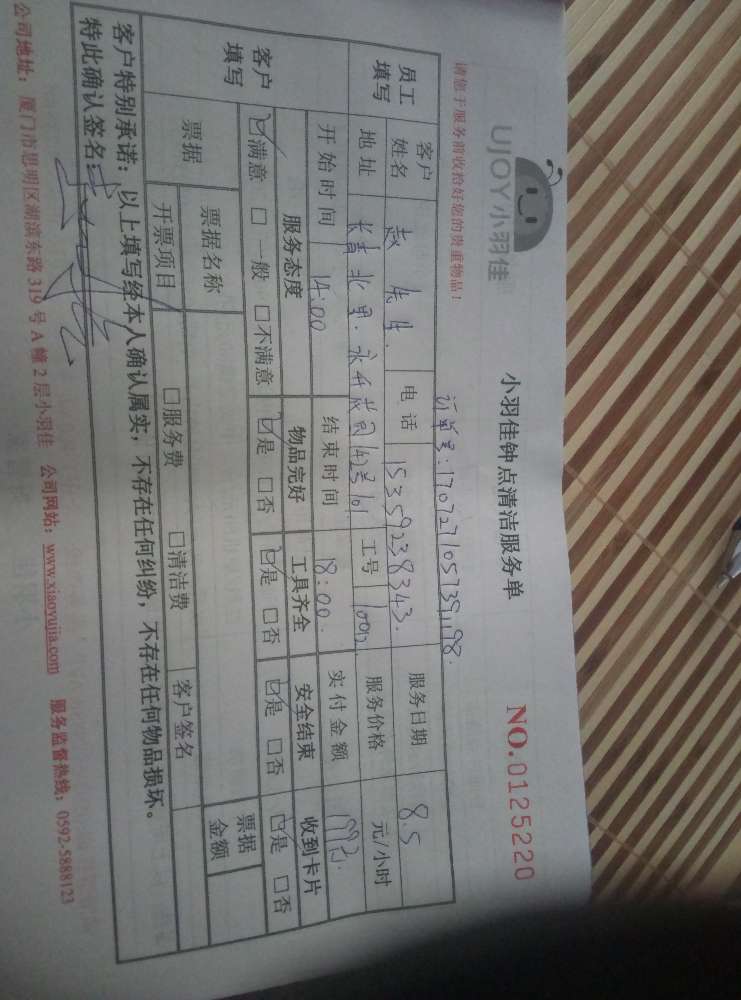 UJOY小羽佳
小羽佳钟点清洁服务单
NO.0125220
请您于服务前收拾好您的贵重物品!
订单号:
员工填写
客户姓名 赵先生. 电话 15359238343. 服务日期 8.5
地址 工号 服务价格 元/小时
开始时间 14:00 结束时间 18:00. 实付金额
客户填写
服务态度 物品完好 工具齐全 安全结束 收到卡片
☑满意 □一般 □不满意 ☑是 □否 ☑是 □否 ☑是 □否 ☑是 □否
票据
票据名称 票据金额
开票项目 □服务费 □清洁费 客户签名
客户特别承诺:以上填写经本人确认属实,不存在任何纠纷,不存在任何物品损坏。
特此确认签名:
公司地址:厦门市思明区湖滨东路319号A幢2层小羽佳 公司网站:www.xiaoyujia.com 服务监督热线:0592-5888123